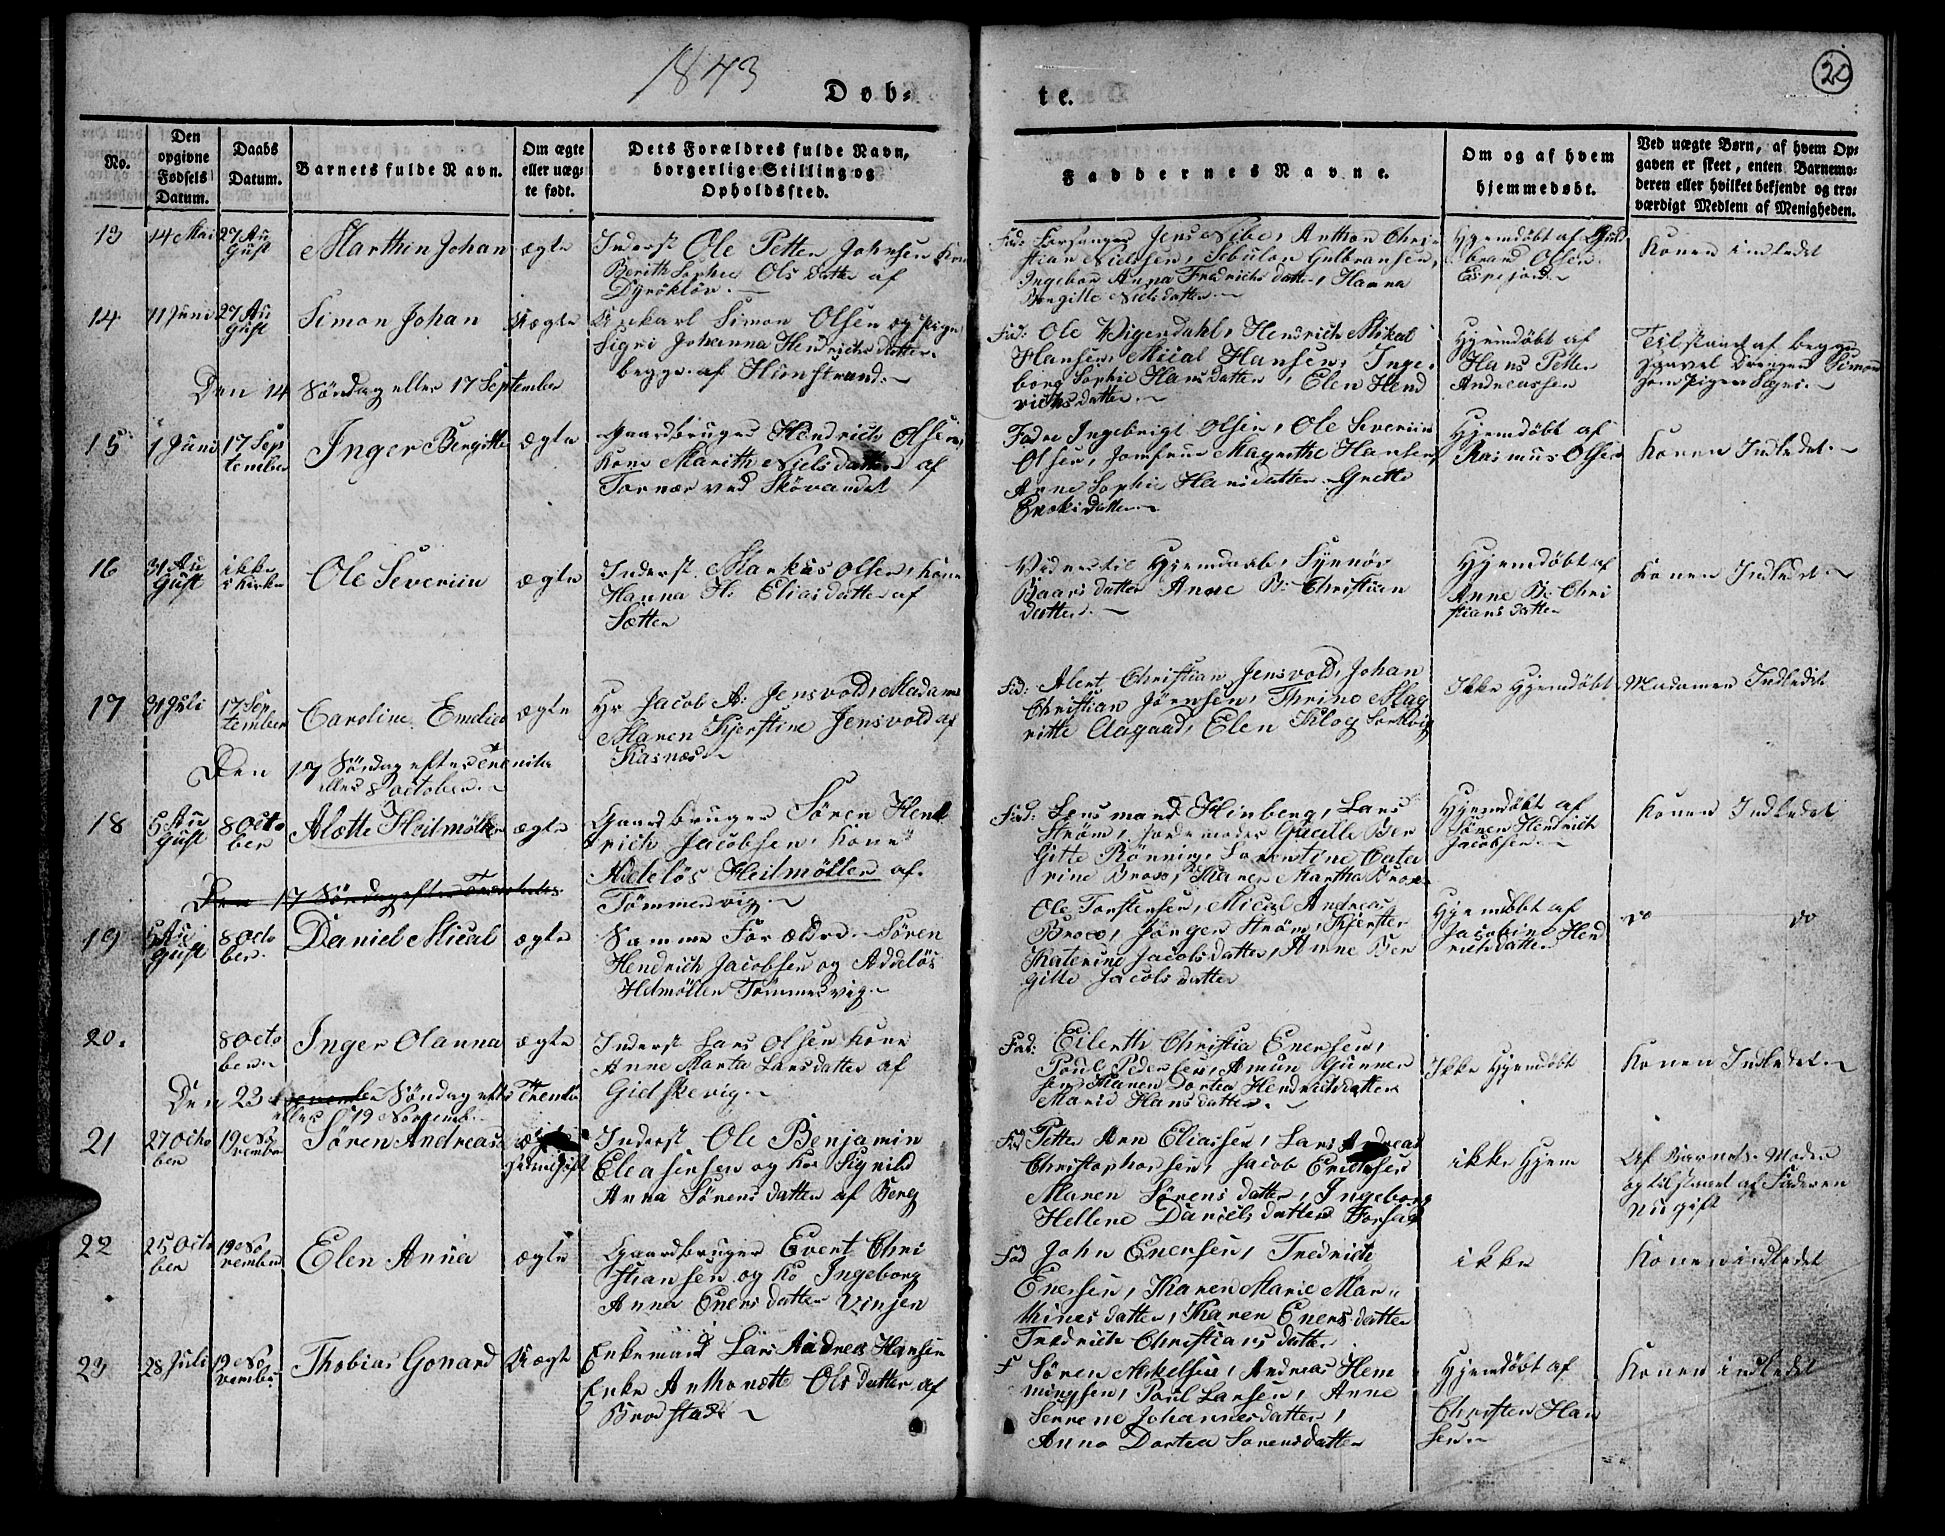 1843
Døb-
te.
20
No.
Den opgivne Fødsels Datum.
Daabs Datum.
Barnets fulde Navn.
Om ægte eller uæg-
te født.
Dets Forældres fulde Navn,
borgerlige Stilling og
Opholdssted.
Faddernes Navne.
Om og af hvem
hjemmedøbt.
Ved uægte Børn, af hvem Op-
gaven er skeet, enten Barnemo-
deren eller hvilket bekjendt og tro-
værdigt Medlem af Menigheden.
13
14 Mai
27 Au
Gust
Marthin Johan
ægte
Inderst Ole Petter Johnsen Kone
Berith Sophie Ols datter af
Dyröklöv.
Jens Nibe, Anthon Chri
stian Nielsen, Sebulon Gulbransen,
Ingebor Anna Fredrichs datter, Hanna
Bergitte Niels datter
Hjemdøbt af Guld
brand Olsen
Konen indledet
14
11 Juni
27 Au
Gust
Simon Johan
Uægte
Ungkarl Simon Olsen og Pige
Sigri Johanna Hendrichs datter
begge af Hunstrand.
Fad: Ole Vigendahl, Hendrich Mikal
Hansen, Mical Hansen, Inge
borg Sophie Hans datter, Elen Hend
richs datter.
Hjemdøbt af
Hans Petter
Andreassen
Tilstaaet af begge
saavel Drengen Simon
som Pigen Sigri.
Den 14 Söndag eller 17 September
15
1 Juni
17 Sep
tember
Inger Bergitte
ægte
Gaardbruger Hendrich Olsen
Kone Marith Niels datter af
Tornær ved Skövandet
Fadre Ingebrigt Olsen, Ole Severiin
Olsen, Jomfrue Magrethe Hansen,
Anne Sophie Hans datter Grette
Enoks datter
Hjemdøbt af
Rasmus Olsen
Konen Indledet.
16
31 Au
Gust
ikke
i Kirke
Ole Severiin
ægte
Inderst Markus Olsen, Kone
Hanna H: Elias datter af
Sætter
Vidner til Hjemdaab, Synnöv
Baars datter Anne B: Christian
datter.
Hjemdøbt af
Anne B: Chri
stians datter
Konen Indledet.
17
31 Juli
17 Sep
tember
Caroline Emelie
ægte
Hr Jacob A: Jensvold, Madame
Maren Kjerstine Jensvold af
Kasnæs
Fad: Alert Christian Jensvold, Johan
Christian Jörnsen, Thrine Mag
ritte Aagaad, Elen Klog
Ikke Hjemdøbt
Madamen Indledet
Den 17 Söndag efter Trenita
eller 8 October.
18
5 Au
Gust
8 Octo
ber
Alotte Heitmöller
ægte
Gaardbruger Sören Hend
rich Jacobsen, Kone
Adelös Heitmöller af
Tömmervig.
Fad: Lensmand Hinberg, Lars
Ström, Jordemoder Gucille Ber
Gitte Rönning, Sorentine Cate
rine Brox, Maren Martha Brox
Hjemdøbt af
Sören Hendrich
Jacobsen.
Konen Indledet
Den 17 Söndag efter
19
5 Au
Gust
8 Octo
ber.
Daniel Mical
ægte
Samme Forældre. Sören
Hendrich Jacobsen og Addelös
Hetmöller Tömmervig.
Ole Torstensen, Mical Andreas
Brox, Jörgen Ström, Kjerster
Katerine Jacobs datter, Anne Ber
gitte Jacobs datter
Hjemdøbt af
Jacobine Hend
richs datter
do do
20.
8 Octo
ber.
Inger Olanna
ægte
Inderst Lars Olsen Kone
Anne Marta Lars datter af
Gidskevig.
Fad: Eilerth Christia Enersen,
Poul Peder sen, Amun Gunner
sen, Karen Dortea Hendrichs datter
Marid Hans datter.
Ikke Hjemdøbt
Konen Indledet.
Den 23 Söndag efter Trenita
eller 19 Novemb.
21
27 Octo
ber
19 No
vember
Sören Andreas
Inderst Ole Benjamin
Eleasersen og Ko Signild
Anna Sörens datter af Berg
Fad Petter Arn Eliassen, Lars Andreas
Christophersen, Jacob Erichsen
Maren Sörens datter, Ingeborg
Hellene Daniels datter Forsaa
ikke Hjem
Af Barnets Moder
og tilstaaet af Faderen
Nugift
22
25 Octo
ber
19 No
vember
Elen Anna
ægte
Gaardbruger Evert Chri
stiansen og Ko Ingeborg
Anna Eners datter Vinjen
Fad John Enersen, Fredrich
Enersen, Karen Marie Mar-
thines datter, Karen Eners datter
Fredrich Christians datter
ikke
Konen indledet
23
28 Juli
19 No
vember
Thobias Gonard
Uægte
Enkemand Lars Andreas Hansen
Enke Anthonette Ols datter af
Brodstad
F Sören Mikelsen, Andreas Hem
mingsen, Poul Larsen, Anne
Serrene Johannes datter,
Anna Dortea Sorens datter
Hjemdøbt af
Christen Han
sen.
Konen indledet